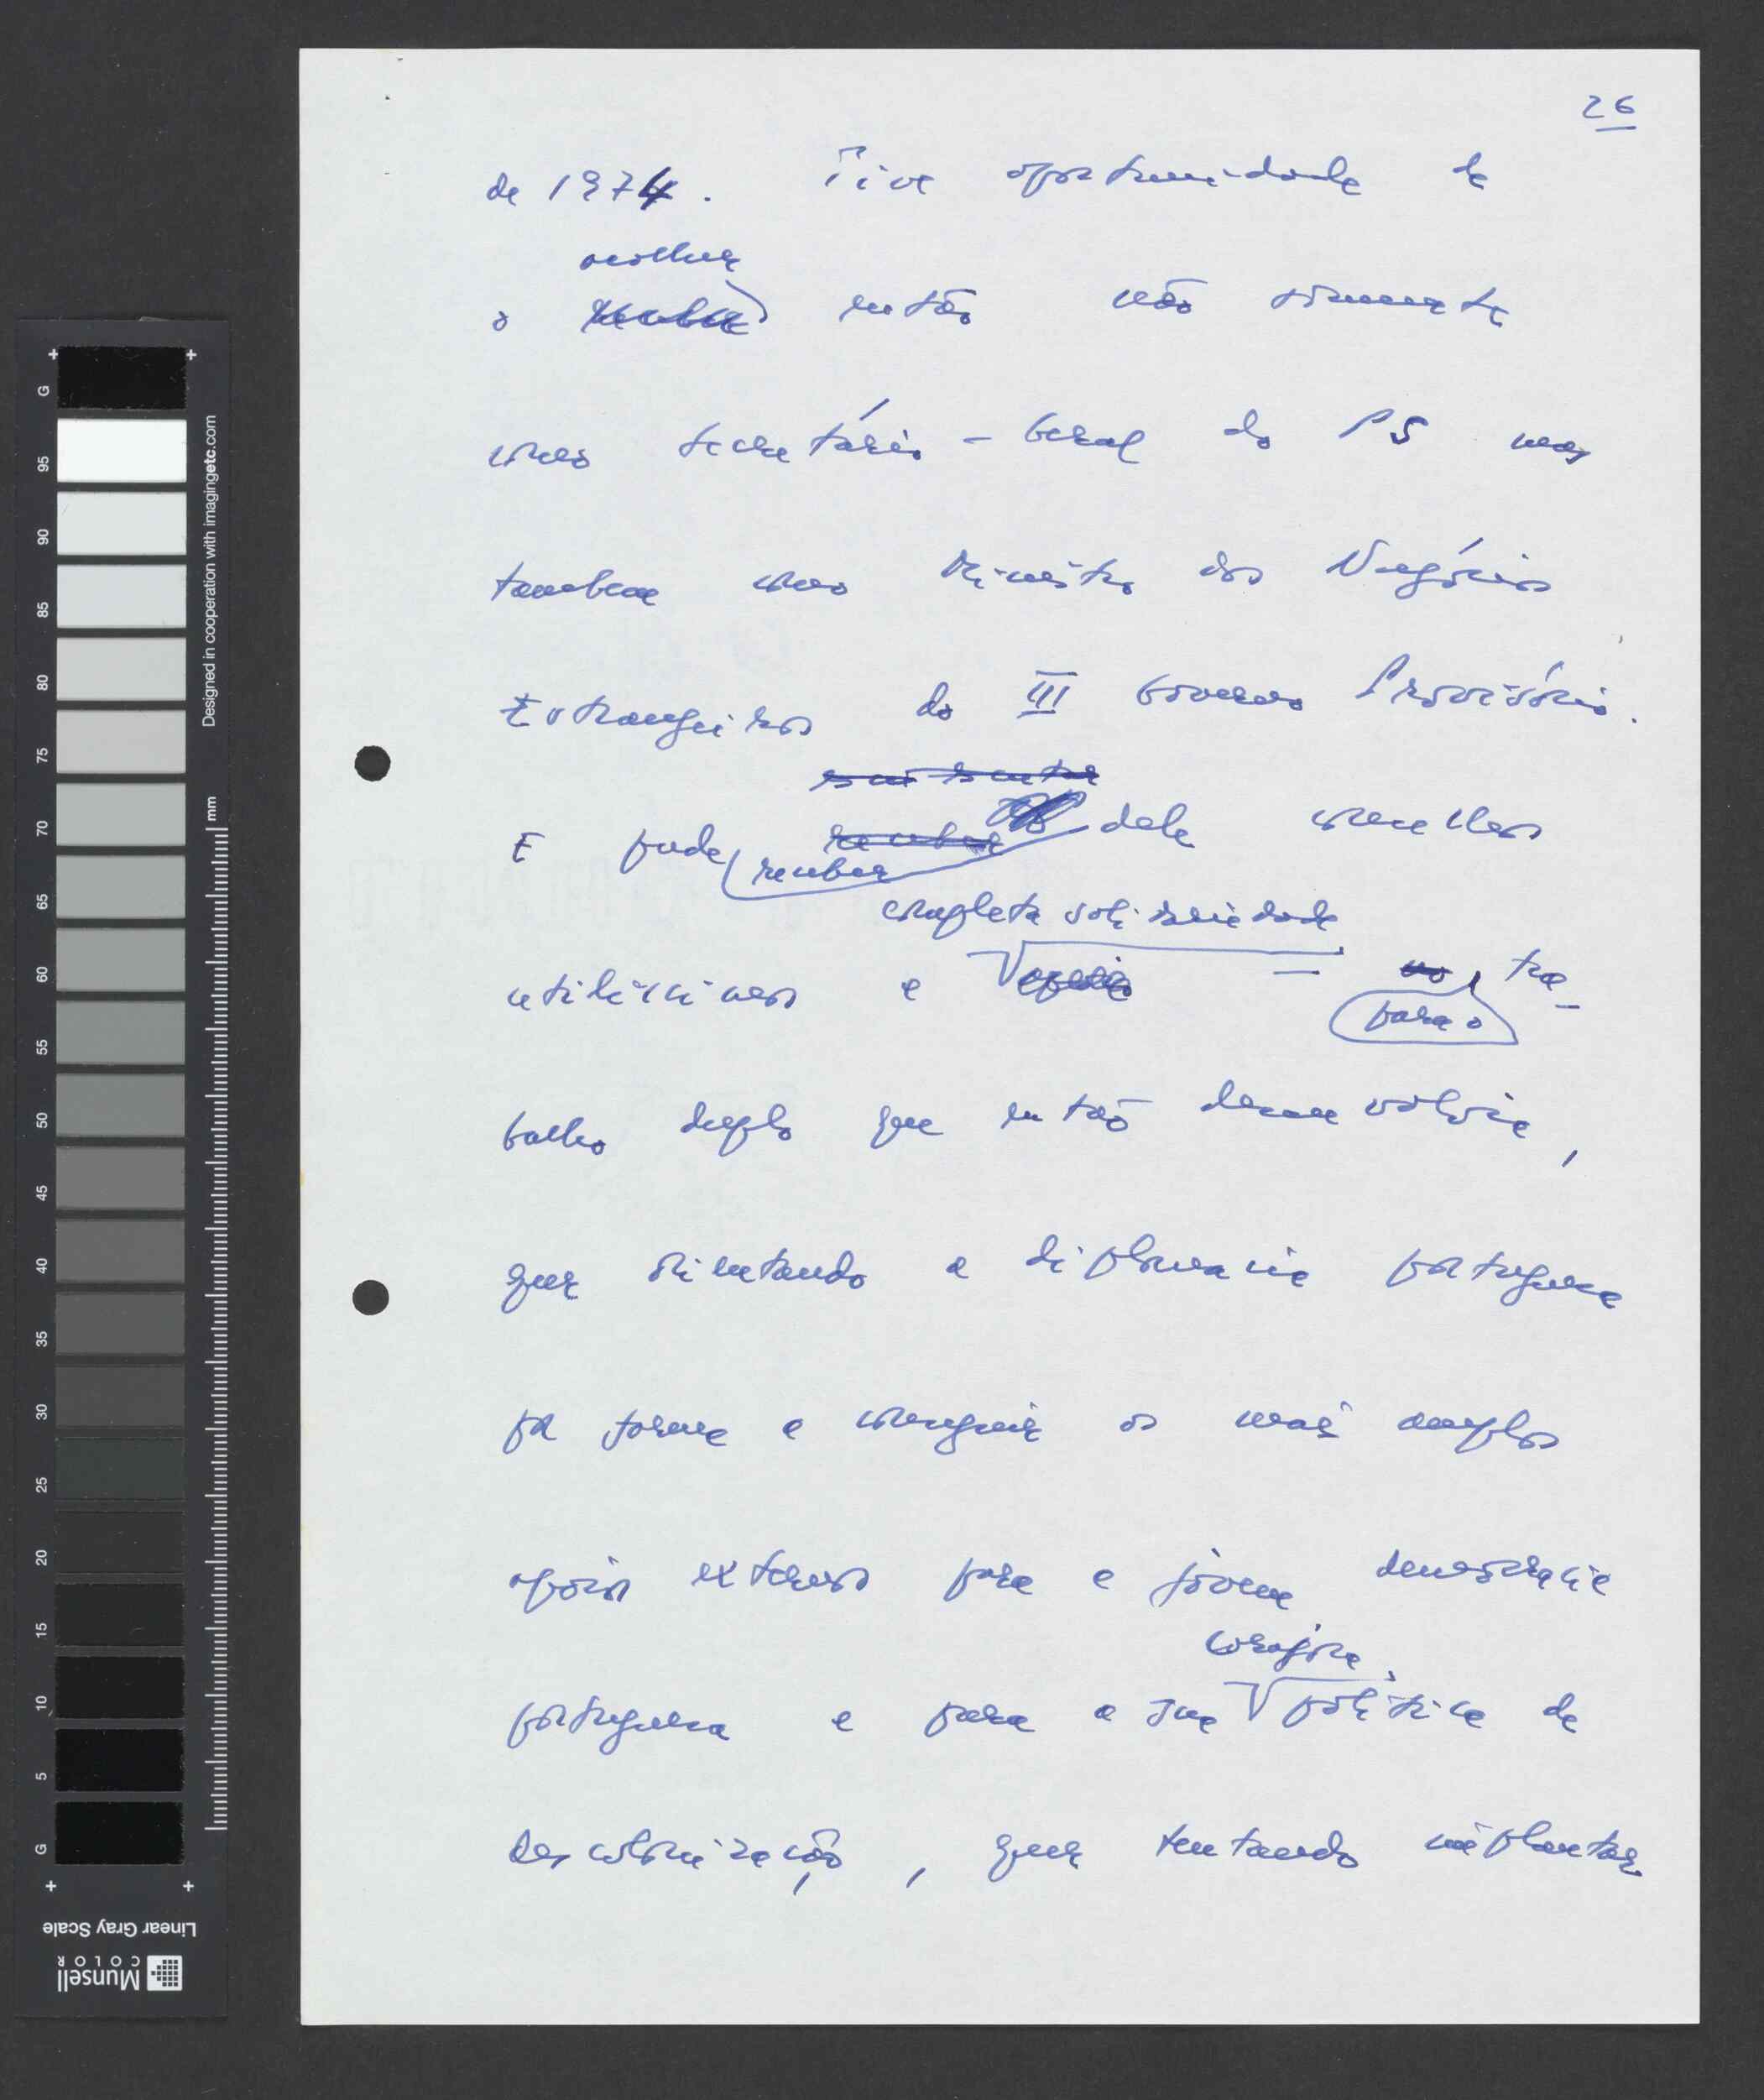 26
de 1974. Tive oportunidade de
acolher
o receber então não somente
como Secretário-Geral do PS mas
tambem como Ministro dos Negócios
Estrangeiros do III Governo Provisório.
E pude receber dele conselhos
receber
completa solidariedade
utilíssimos e apoio no tra-
para o
balho duplo que então desenvolvia,
quer orientando a diplomacia portuguesa
por forma a conseguir os mais amplos
apoios externos para a jovem democracia
corajosa
portuguesa e para a sua política de
descolonização, quer tentando implantar
G
95
90
85
80
75
70
65
60
55
50
45
40
35
30
25
20
15
10
5
G
mm
Designed in cooperation with imagingetc.com
Linear Gray Scale
Munsell
COLOR